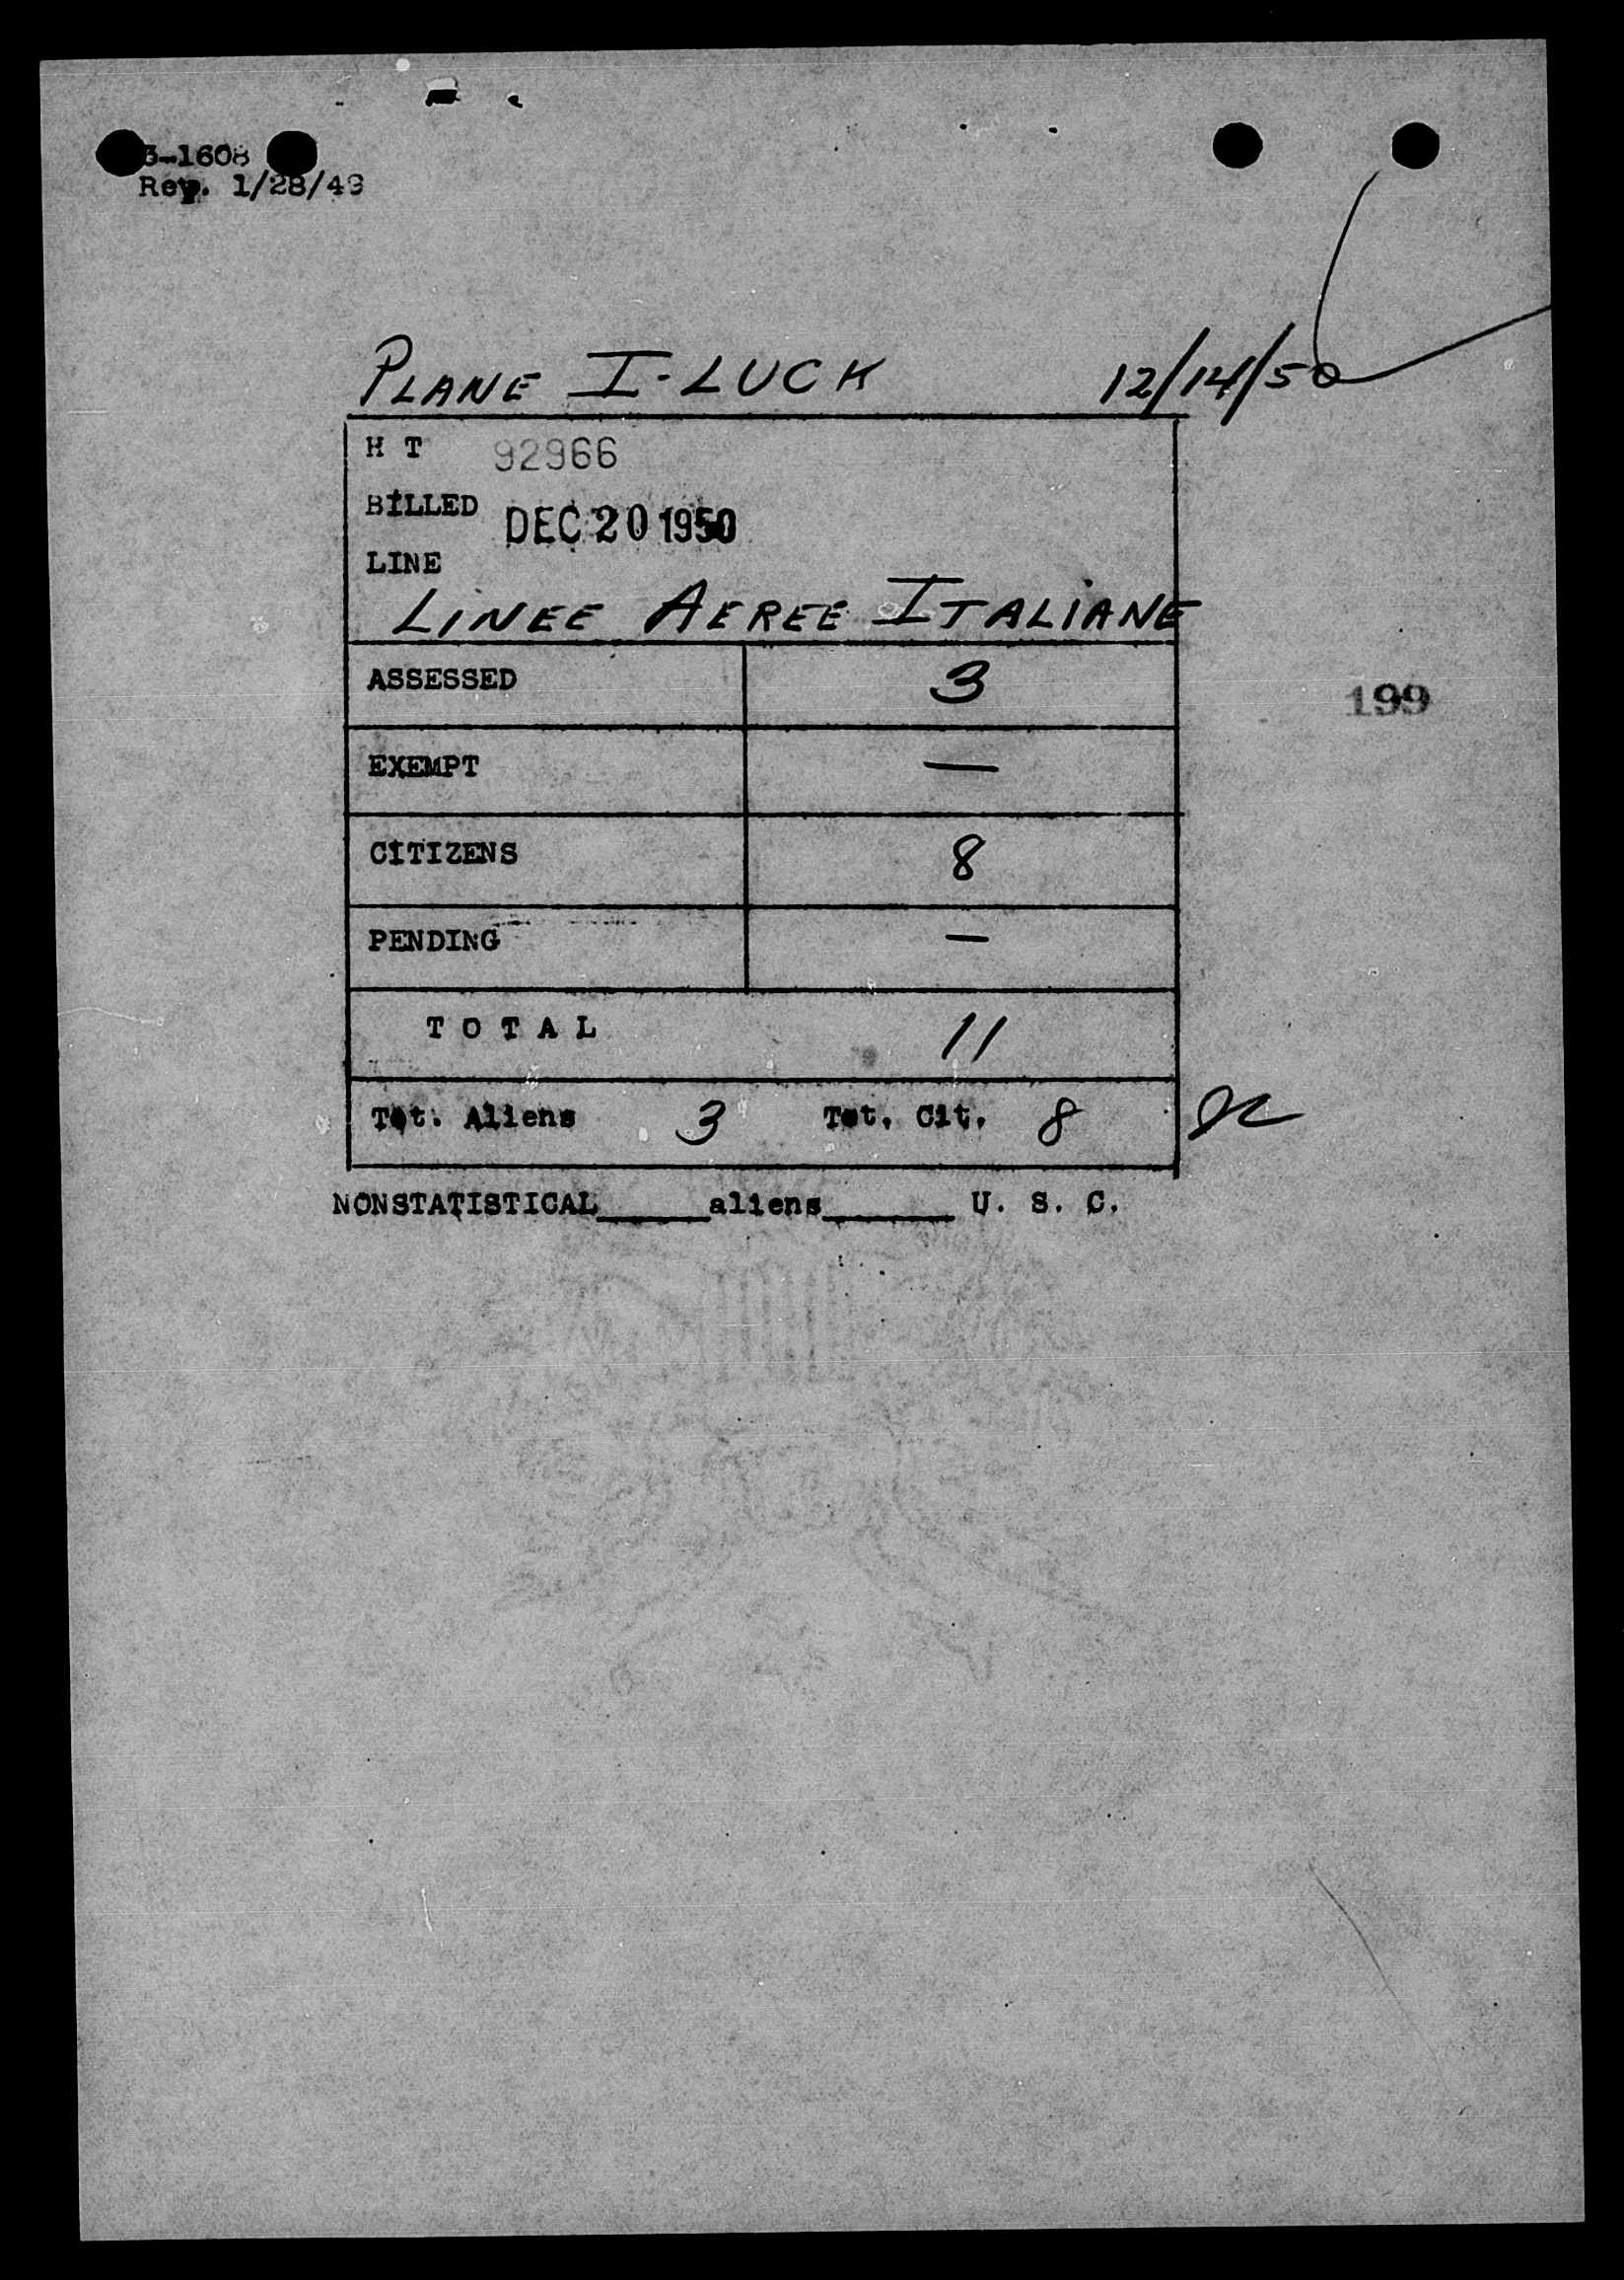 3-1608
Rev. 1/28/49
PLANE I-LUCK 12/14/50
H T 92966
BILLED DEC 20 1950
LINE
LINEE AEREE ITALIANE
ASSESSED 3
199
EXEMPT —
CITIZENS 8
PENDING —
T O T A L 11
Tot. Aliens 3 Tot. Cit. 8
NONSTATISTICAL______aliens_______ U. S. C.